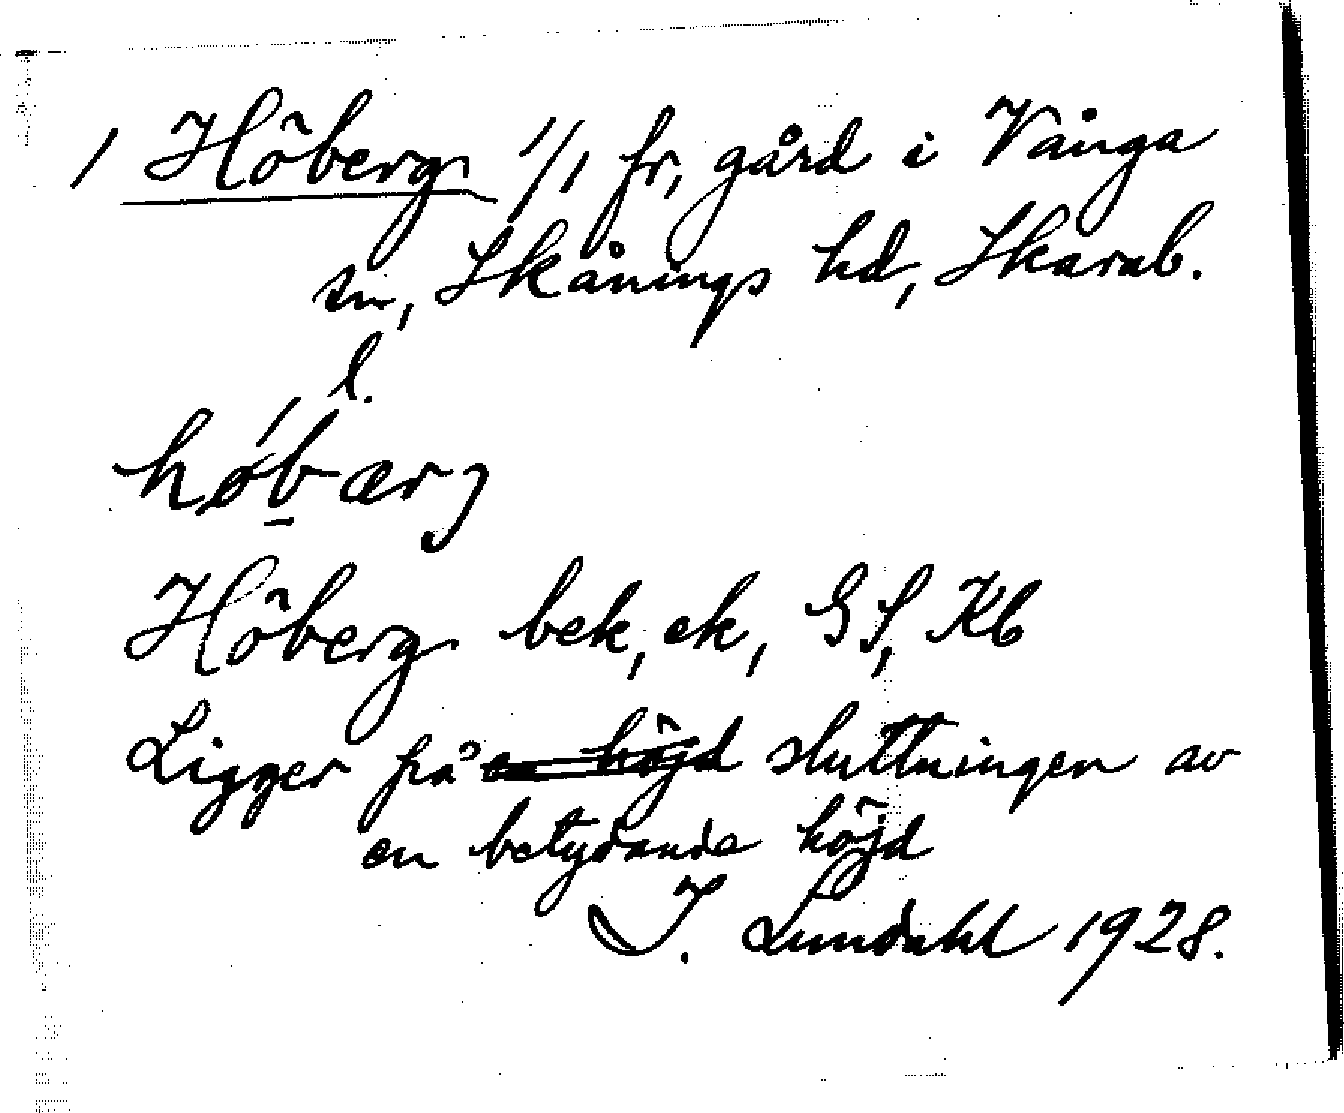 1 Höberg 1/1 fr, gård i Vånga
sn, Skånings hd, Skarab.
l.
høbærj
Höberg bek, ek, GS, Kb
Ligger på en höjd sluttningen av
en betydande höjd
I. Lundahl 1928.